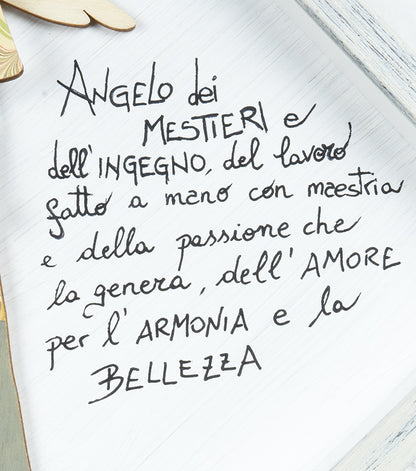 ANGELO dei
MESTIERI e
dell'INGEGNO, del lavoro
fatto a mano con maestria
e della passione che
la genera, dell'AMORE
per l'ARMONIA e la
BELLEZZA